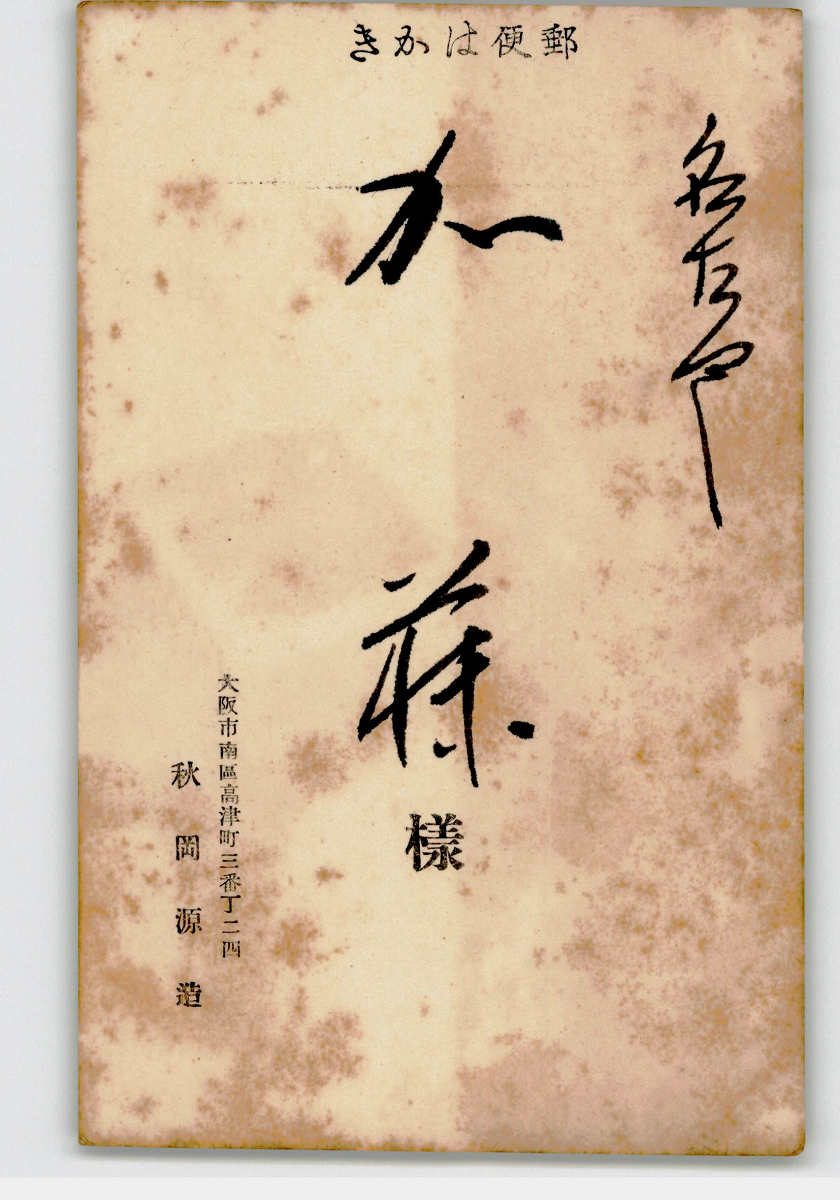 郵便はかき
名古ヤ
加藤樣
大阪市南區高津町三番丁二四
秋岡源造